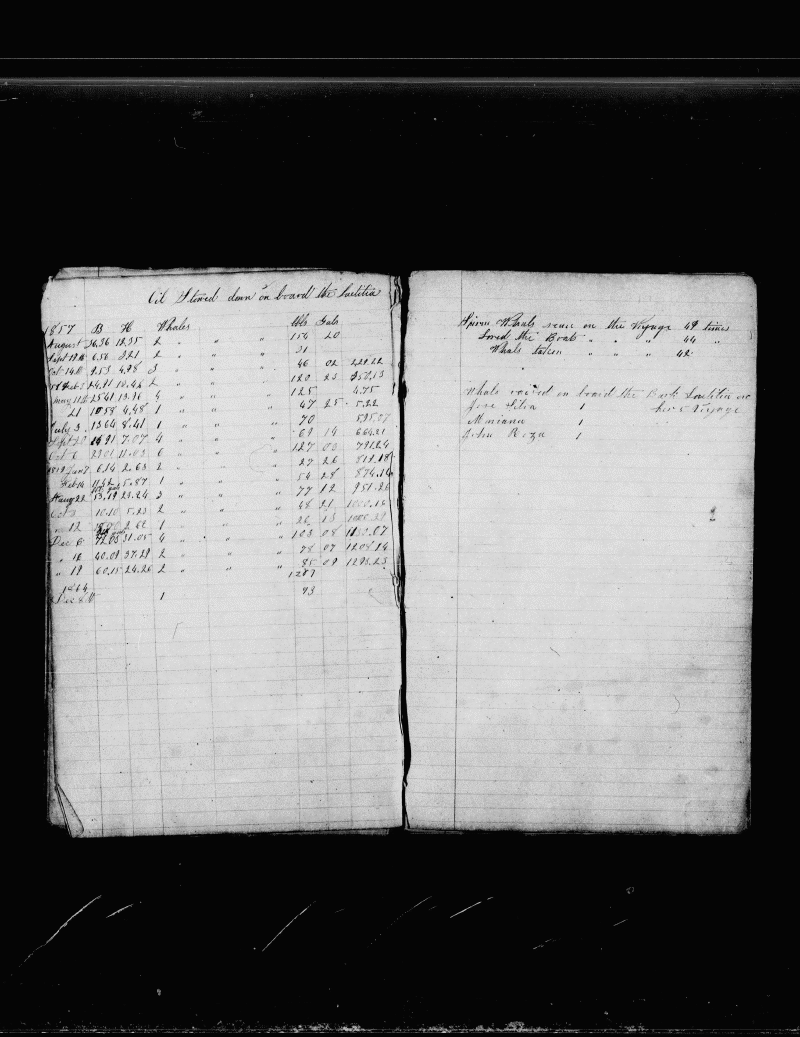 Oil Stowed down on board the Laetitia
1857 B H Whales bbls Gals
August 26.36 18.35 2 " " " 154 20
Sept 18th 6.56 3.21 2 " " " 31
Oct 14th 9.53 4.98 3 " " " 46 02 229.22
58 Feb 24.11 10.46 2 " " " 120 23 350.13
may 11th 25.41 13.16 4 " " " 125 4.75
21 10.58 4.48 1 " " " 47 25 5.22
July 3 13.64 8.41 1 " " " 70 595.07
Sept 20 18.91 7.07 4 " " " 69 14 664.21
Oct 6 23.01 11.03 6 " " " 127 03 791.24
1859 Jan 7 6.14 2.63 2 " " " 27 26 819.18
Feb 14 5.87 1 " " " 54 28 874.14
Aug 22 53.19 23.24 3 " " " 77 12 951.26
Oct 3 10.10 5.23 2 " " " 48 21 1000.16
" 12 2.62 1 " " " 26 13
Dec 6 72.03 31.05 4 " " " 103 08 07
" 12 40.09 37.29 2 " " " 78 07 1208.14
" 19 60.15 24.26 2 " " " 85 09 1293.23
1297
Dec 8th 1 93 "
Sperm Whals seen on the Voyage 49 times
Lowed the Boats " " " 44 "
Whals taken " " " 42
Whals raised on board the Bark Laetitia on
Jose Silva 1 her 5 Voyage
Mariana 1
John Roza 1